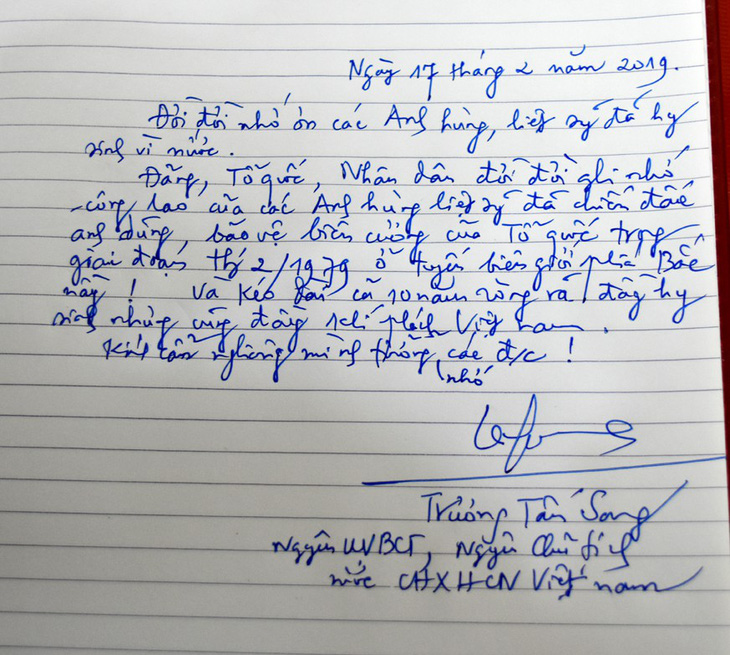 Ngày 17 tháng 2 năm 2019.
Đời đời nhớ ơn các Anh hùng, liệt sỹ đã hy
sinh vì nước.
Đảng, Tổ quốc, Nhân dân đời đời ghi nhớ
công lao của các Anh hùng liệt sỹ đã chiến đấu
anh dũng, bảo vệ biên cương của Tổ quốc trong
giai đoạn th¸ 2/1979 ở tuyến biên giới phía Bắc
này! Và kéo dài cả 10 năm ròng rã, đầy hy
sinh nhưng cũng đầy khí phách Việt nam.
Kính cẩn nghiêng mình thương các đ/c!
nhớ
Trương Tấn Sang
Nguyên UVBCT, Nguyên Chủ tịch
nước CHXHCN Việt nam